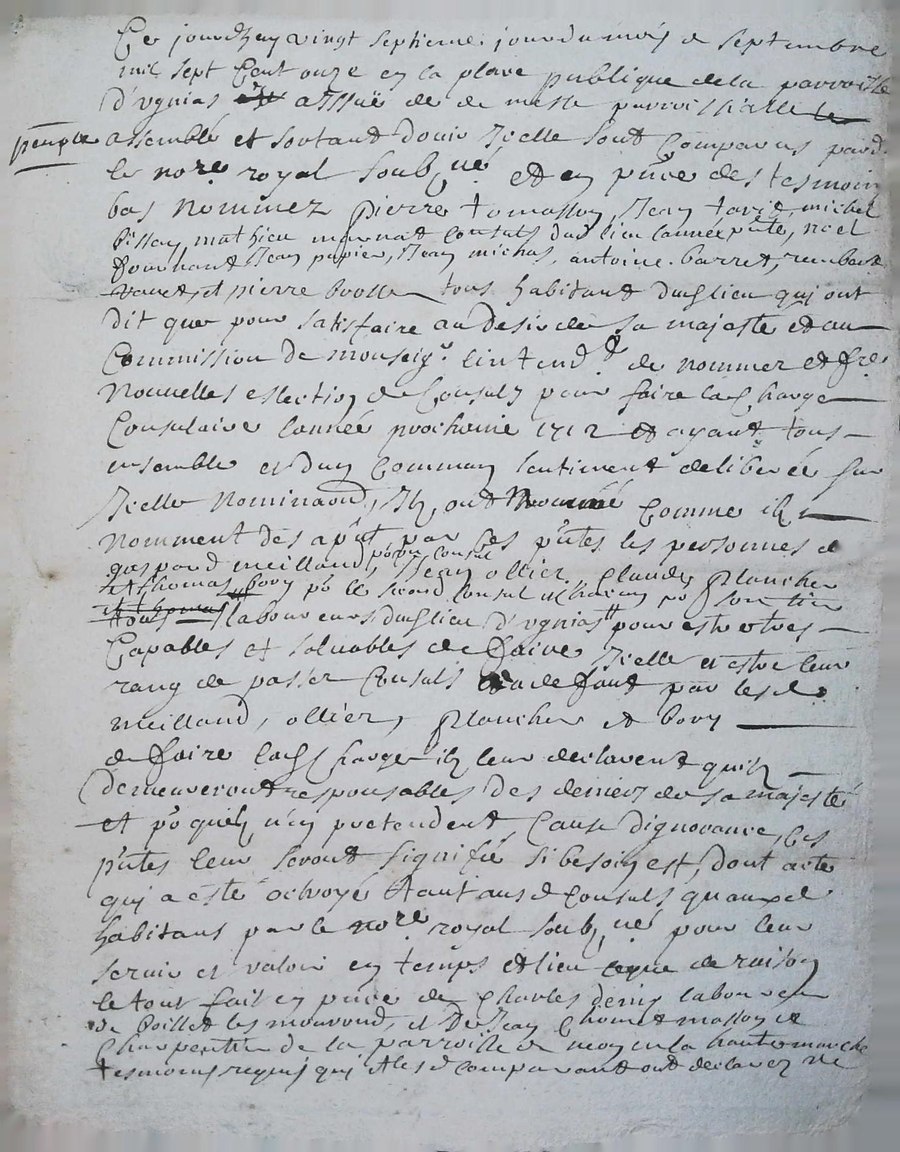 Ce jourdhuy vingt septieme jour du mois de septembre
mil sept Cent onze en la place publique de la parroisse
d'ugnias a lissuë de de messe parroissialle le
peuple assemblé et sortant d'ouir Icelle sont Comparus pard.
le no.re royal soub.né et en p.nce des tesmoin
bas nommez pierre tomasson, Jean michel
mathieu Consuls dud lieu lannée p.nte, noel
Jean papier, Jean michas, antoine barret,
et pierre tous habitant dud lieu qui ont
dit que pour satisfaire au desir de sa majeste et au
Commission de monseig.r lintend.t de nommer et fre
nouvelles eslection de Consulz pour faire la Charge
Consulaire lannée prochaine 1712 et ayant tous
ensemble et dun Commun sentiment deliberé sur
Icelle nominaon, Ilz ont nommé Comme ilz
nomment des a p.nt par Ces p.ntes les personnes de
gaspard meilland, po.r p.er Consul Jean ollier, Claude plancher
et thomas bory po.r le second Consul
tous laboureurs dud lieu d'ugnias pour estre tres
Capables et solvables de faire Icelle et estre leur
rang de passer Consuls a deffaut par lesd
meilland, ollier, plancher et bory
de faire lad Charge ilz leur declarent quilz
demeureront responsables des deniers de sa majesté
et po.r quilz n'en pretendent Cause dignorance, Ces
p.ntes leur seront signifié si besoin est, dont acte
qui a esté octroyé tant ausd Consuls quauxd
habitans par le no.re royal soub.né pour leur
servir et valoir en temps et lieu que de raison
le tout fait en p.nce de Charles denis laboureur
de et de Jean masson et
Charpentier de la parroisse de en la haute marche
tesmoins requis qui et lesd comparant ont declarez ne